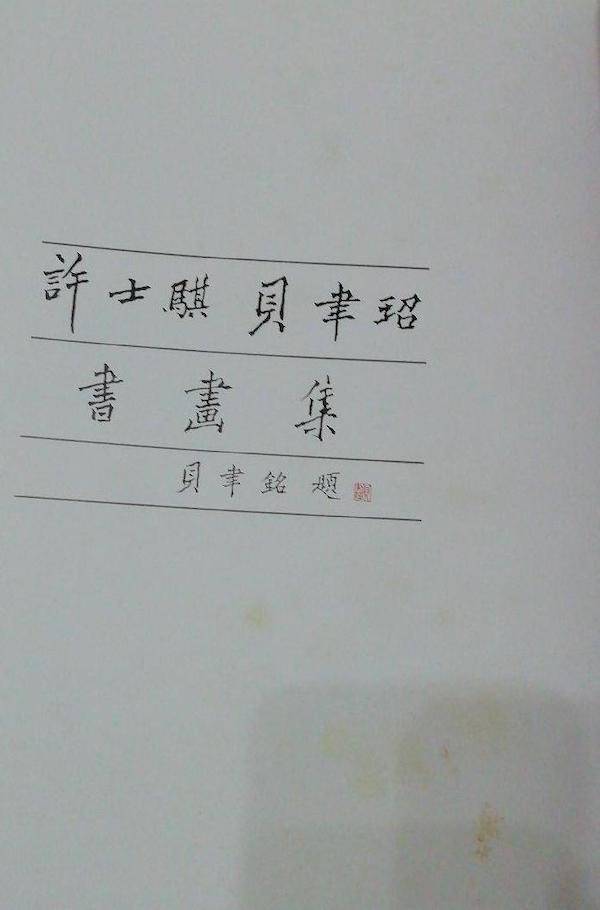 許士騏 貝聿玿
書畫集
貝聿銘題